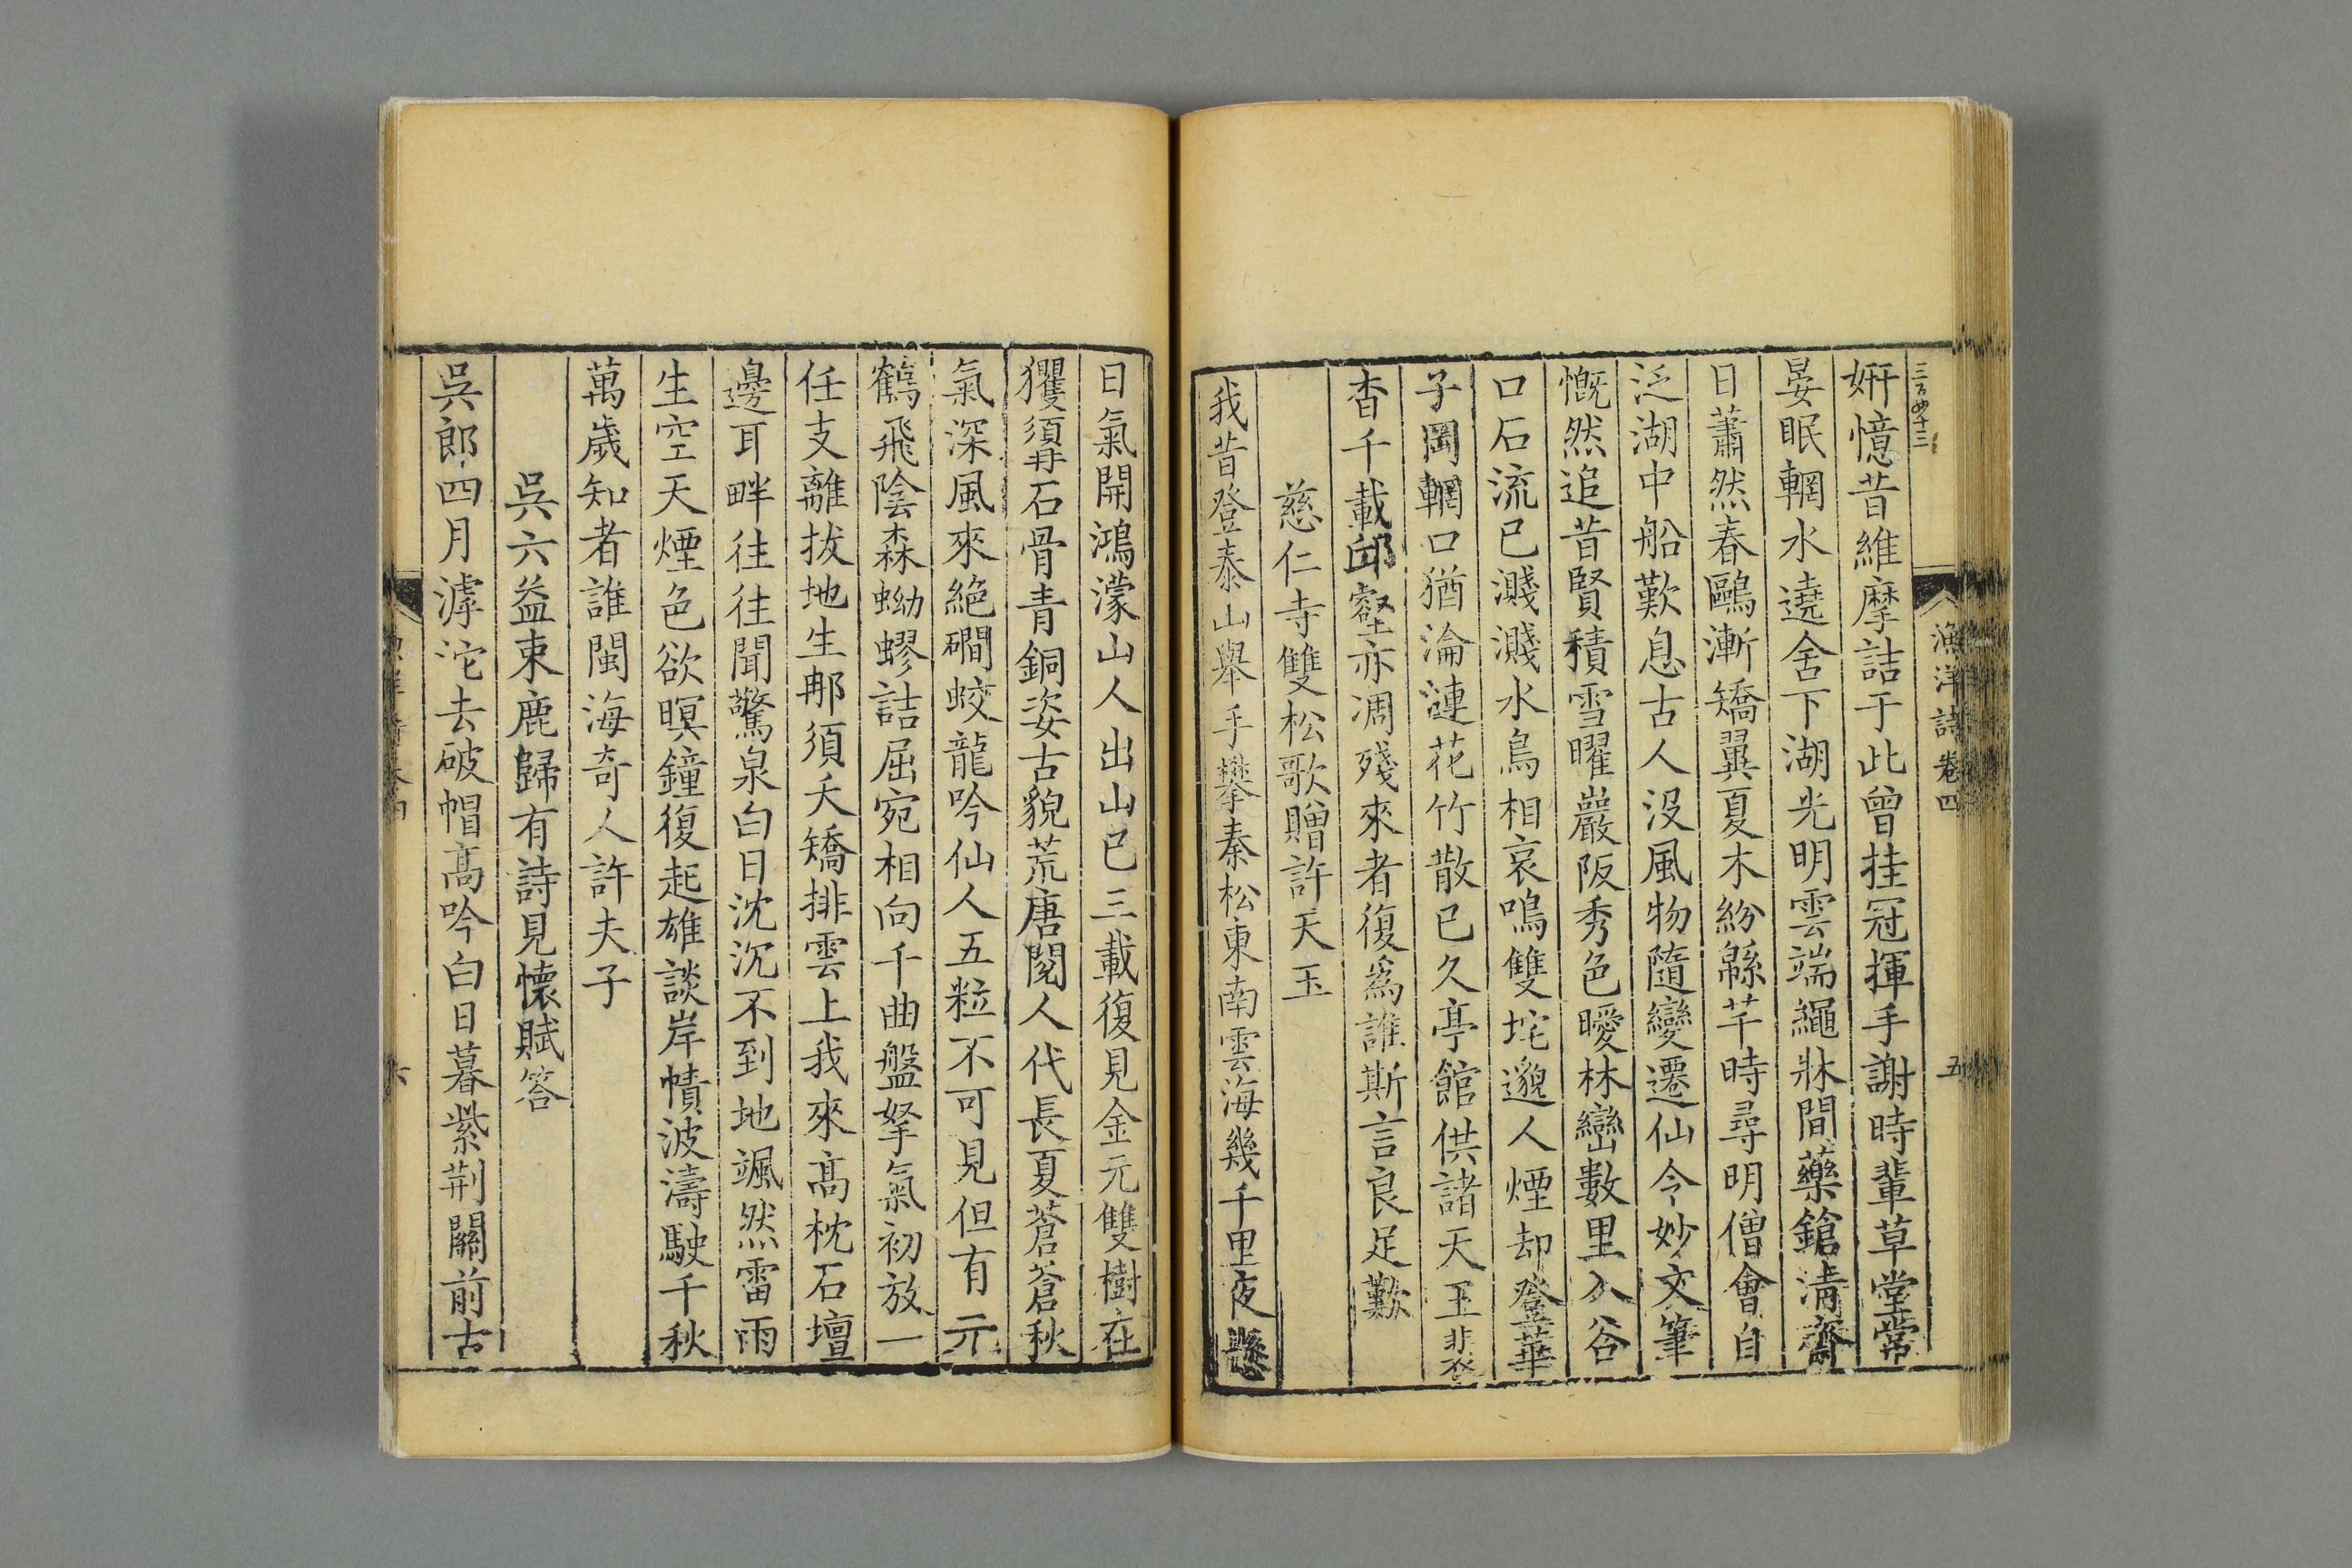 三百四十三
漁洋詩卷四 五
妍憶昔維摩詰于此曾挂冠揮手謝時輩草堂常
晏眠輞水遶舍下湖光明雲端繩牀間藥鎗清齋
日蕭然春鷗漸矯翼夏木紛緜芊時尋明僧會自
泛湖中船歎息古人没風物隨變遷仙令妙文筆
慨然追昔賢積雪曜巖阪秀色曖林巒數里入谷
口石流已濺濺水鳥相哀鳴雙垞邈人煙却登華
子岡輞口猶淪漣花竹散已久亭館供諸天王裴
杳千載邱壑亦凋殘來者復爲誰斯言良足歎
慈仁寺雙松歌贈許天玉
我昔登泰山舉手攀秦松東南雲海幾千里夜懸
日氣開鴻濛山人出山已三載復見金元雙樹在
玃鬚石骨青銅姿古貌荒唐閱人代長夏蒼蒼秋
氣深風來絶磵蛟龍吟仙人五粒不可見但有元
鶴飛陰森蚴蟉詰屈宛相向千曲盤拏氣初放一
任支離拔地生那須夭矯排雲上我來高枕石壇
邊耳畔往往聞驚泉白日沈沉不到地颯然雷雨
生空天煙色欲暝鐘復起雄談岸幘波濤駛千秋
萬歲知者誰閩海奇人許夫子
吳六益束鹿歸有詩見懐賦答
吳郎四月滹沱去破帽高吟白日暮紫荆關前古
六